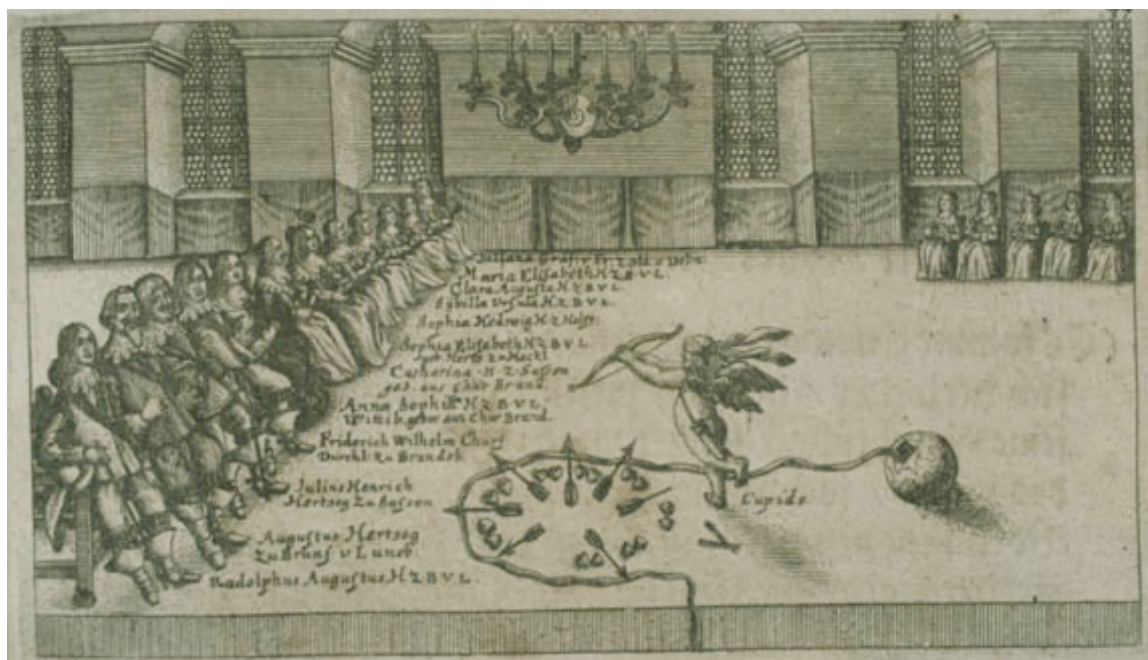 Maria Elisabeth H Z B V L.
Clara Augusta H Z B V L.
Sybilla Ursula H. Z B V L.
Sophia Hedwig H Z Holst:
Sophia Elisabeth H Z B V L.
Catharina H Z Sassen
geb. aus Chur Brand.
Anna Sophia H Z B V L.
aus Chur Brand.
Friderich Wilhelm Churf
Durchl: zu Brandeb.
Julius Henrich
Hertzog Zu Sassen
Augustus Hertzog
Zu Bruns v Luneb:
Rudolphus Augustus H Z B V L.
Cupido